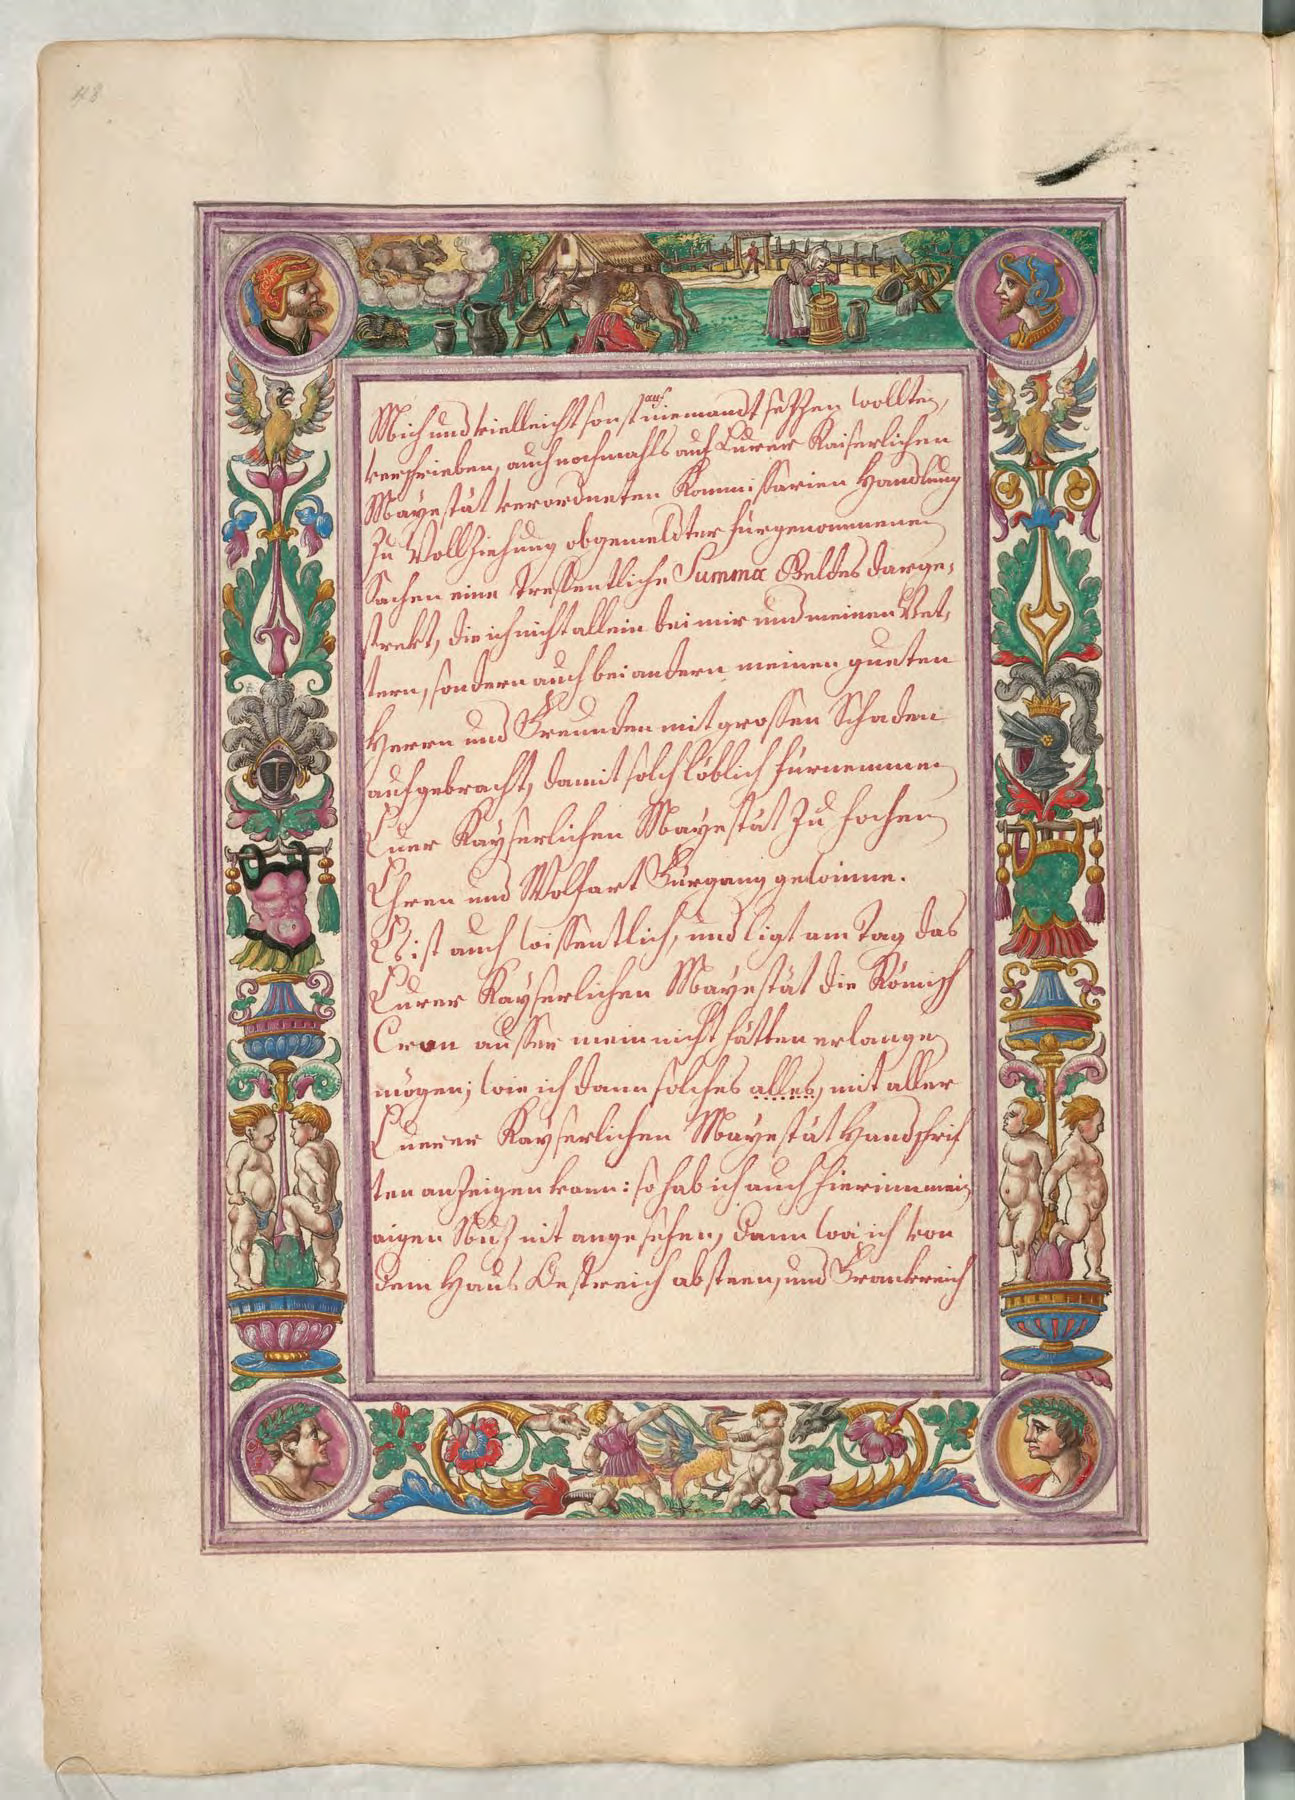 48
Mich und vielleicht sonst auf niemandt setzen wollten,
verschrieben, auch nochmahls auf Eurer Kaiserlichen
Mayestät verordneten Kommissarien Handlung
zu Vollziehung obgemeldter fürgenommenen
Sachen eine treffentliche Summa Geldes darge„
strekt, die ich nicht allein bei mir und meinen Vet„
tern, sondern auch bei andern meinen gueten
Herrn und Freunden mit grossen Schaden
aufgebracht, damit solch löblich fürnemmen
Euer Kayserlichen Mayestät zu hochen
Ehren und Wolfart Fürgang gewinne.
Es ist auch wissentlich, und ligt am Tag das
Eurer Kayserlichen Mayestät die Römisch
Cron ausser mein nicht hätten erlangen
mögen; wie ich dann solches alles, mit aller
Euerer Kayserlichen Mayestät Handschrif
ten anzeigen kann: so hab ich auch hierinn mein
aigen Nuz nit angesehen, dann wo ich von
dem Haus Oestreich absteen, und Frankreich